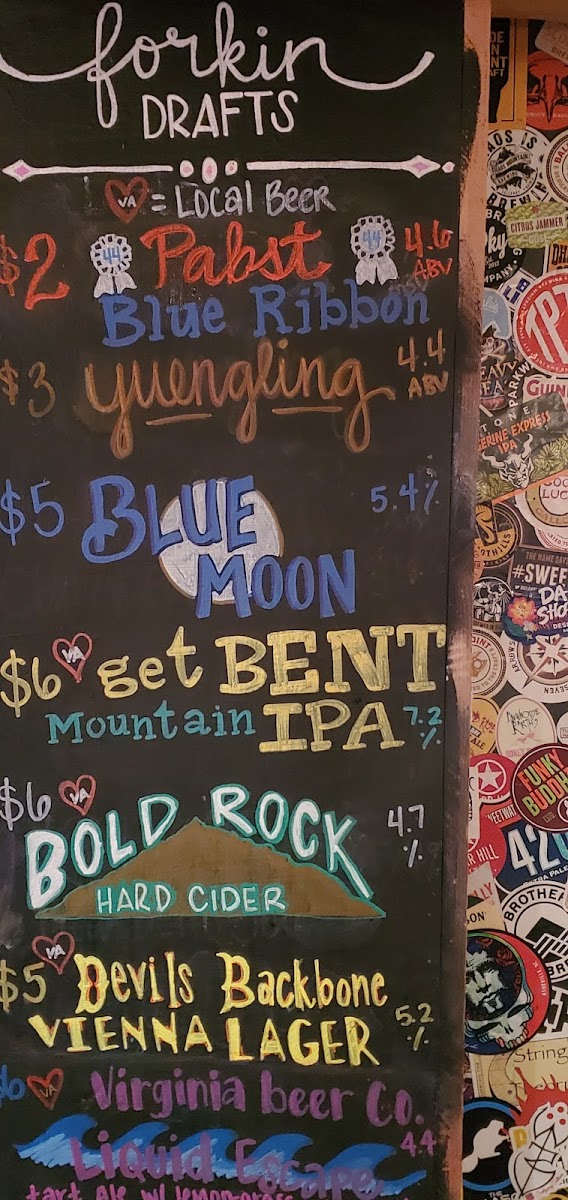 forkin
DRAFTS
VA = Local Beer
$2 44 Pabst 44 4.6 ABV
Blue Ribbon
$3 yuengling 4.4 ABV
$5 BLUE MOON 5.4%
$6 VA get BENT
Mountain IPA 7.2%
$6 VA BOLD ROCK 4.7%
HARD CIDER
$5 VA Devils Backbone
VIENNA LAGER 5.2%
VA Virginia beer Co.
Liquid Escape 4.4
tart ale w/ lemongrass
CITRUS JAMMER
GUINN
ERINE EXPRESS
IPA
THE NAME SAYS
#SWEE
DA
SHO
SEVEN
FUNKY
BUDD
42
R HILL
BROTHE
String